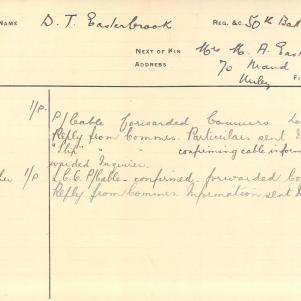 NAME D. T. Easterbrook REG. &C. 50th Batt
NEXT OF KIN Mrs M. A. East
ADDRESS 70 Maud
Unley
1/P. P/Cable forwarded Commrs Lo
Reply from Commrs. Particulars sent I
"Slip" " " confirming cable inform
warded Inquirer.
1/P L.C.C. P/Cable confirmed forwarded Co
Reply from Commrs Information sent